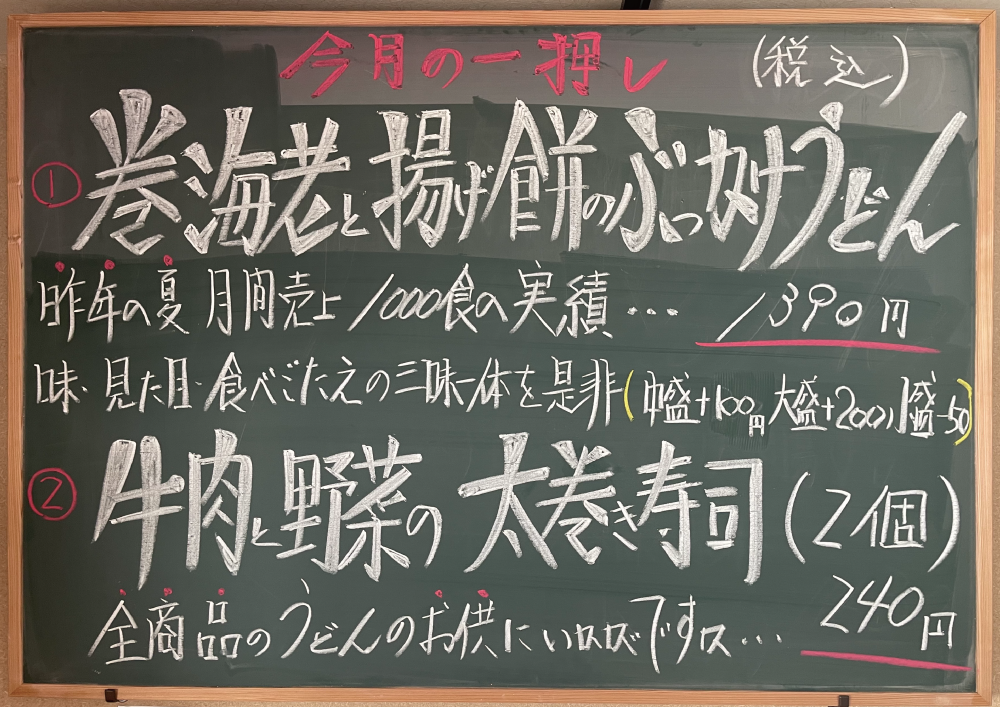 今月の一押し (税込)
① 巻海老と揚げ餅のぶっかけうどん
昨年の夏 月間売上 1000食の実績… 1390円
味・見た目・食べごたえの三味一体を是非(中盛+100円 大盛+200 小盛-50)
② 牛肉と野菜の太巻き寿司(2個)
全商品のうどんのお供にいいですよ… 240円